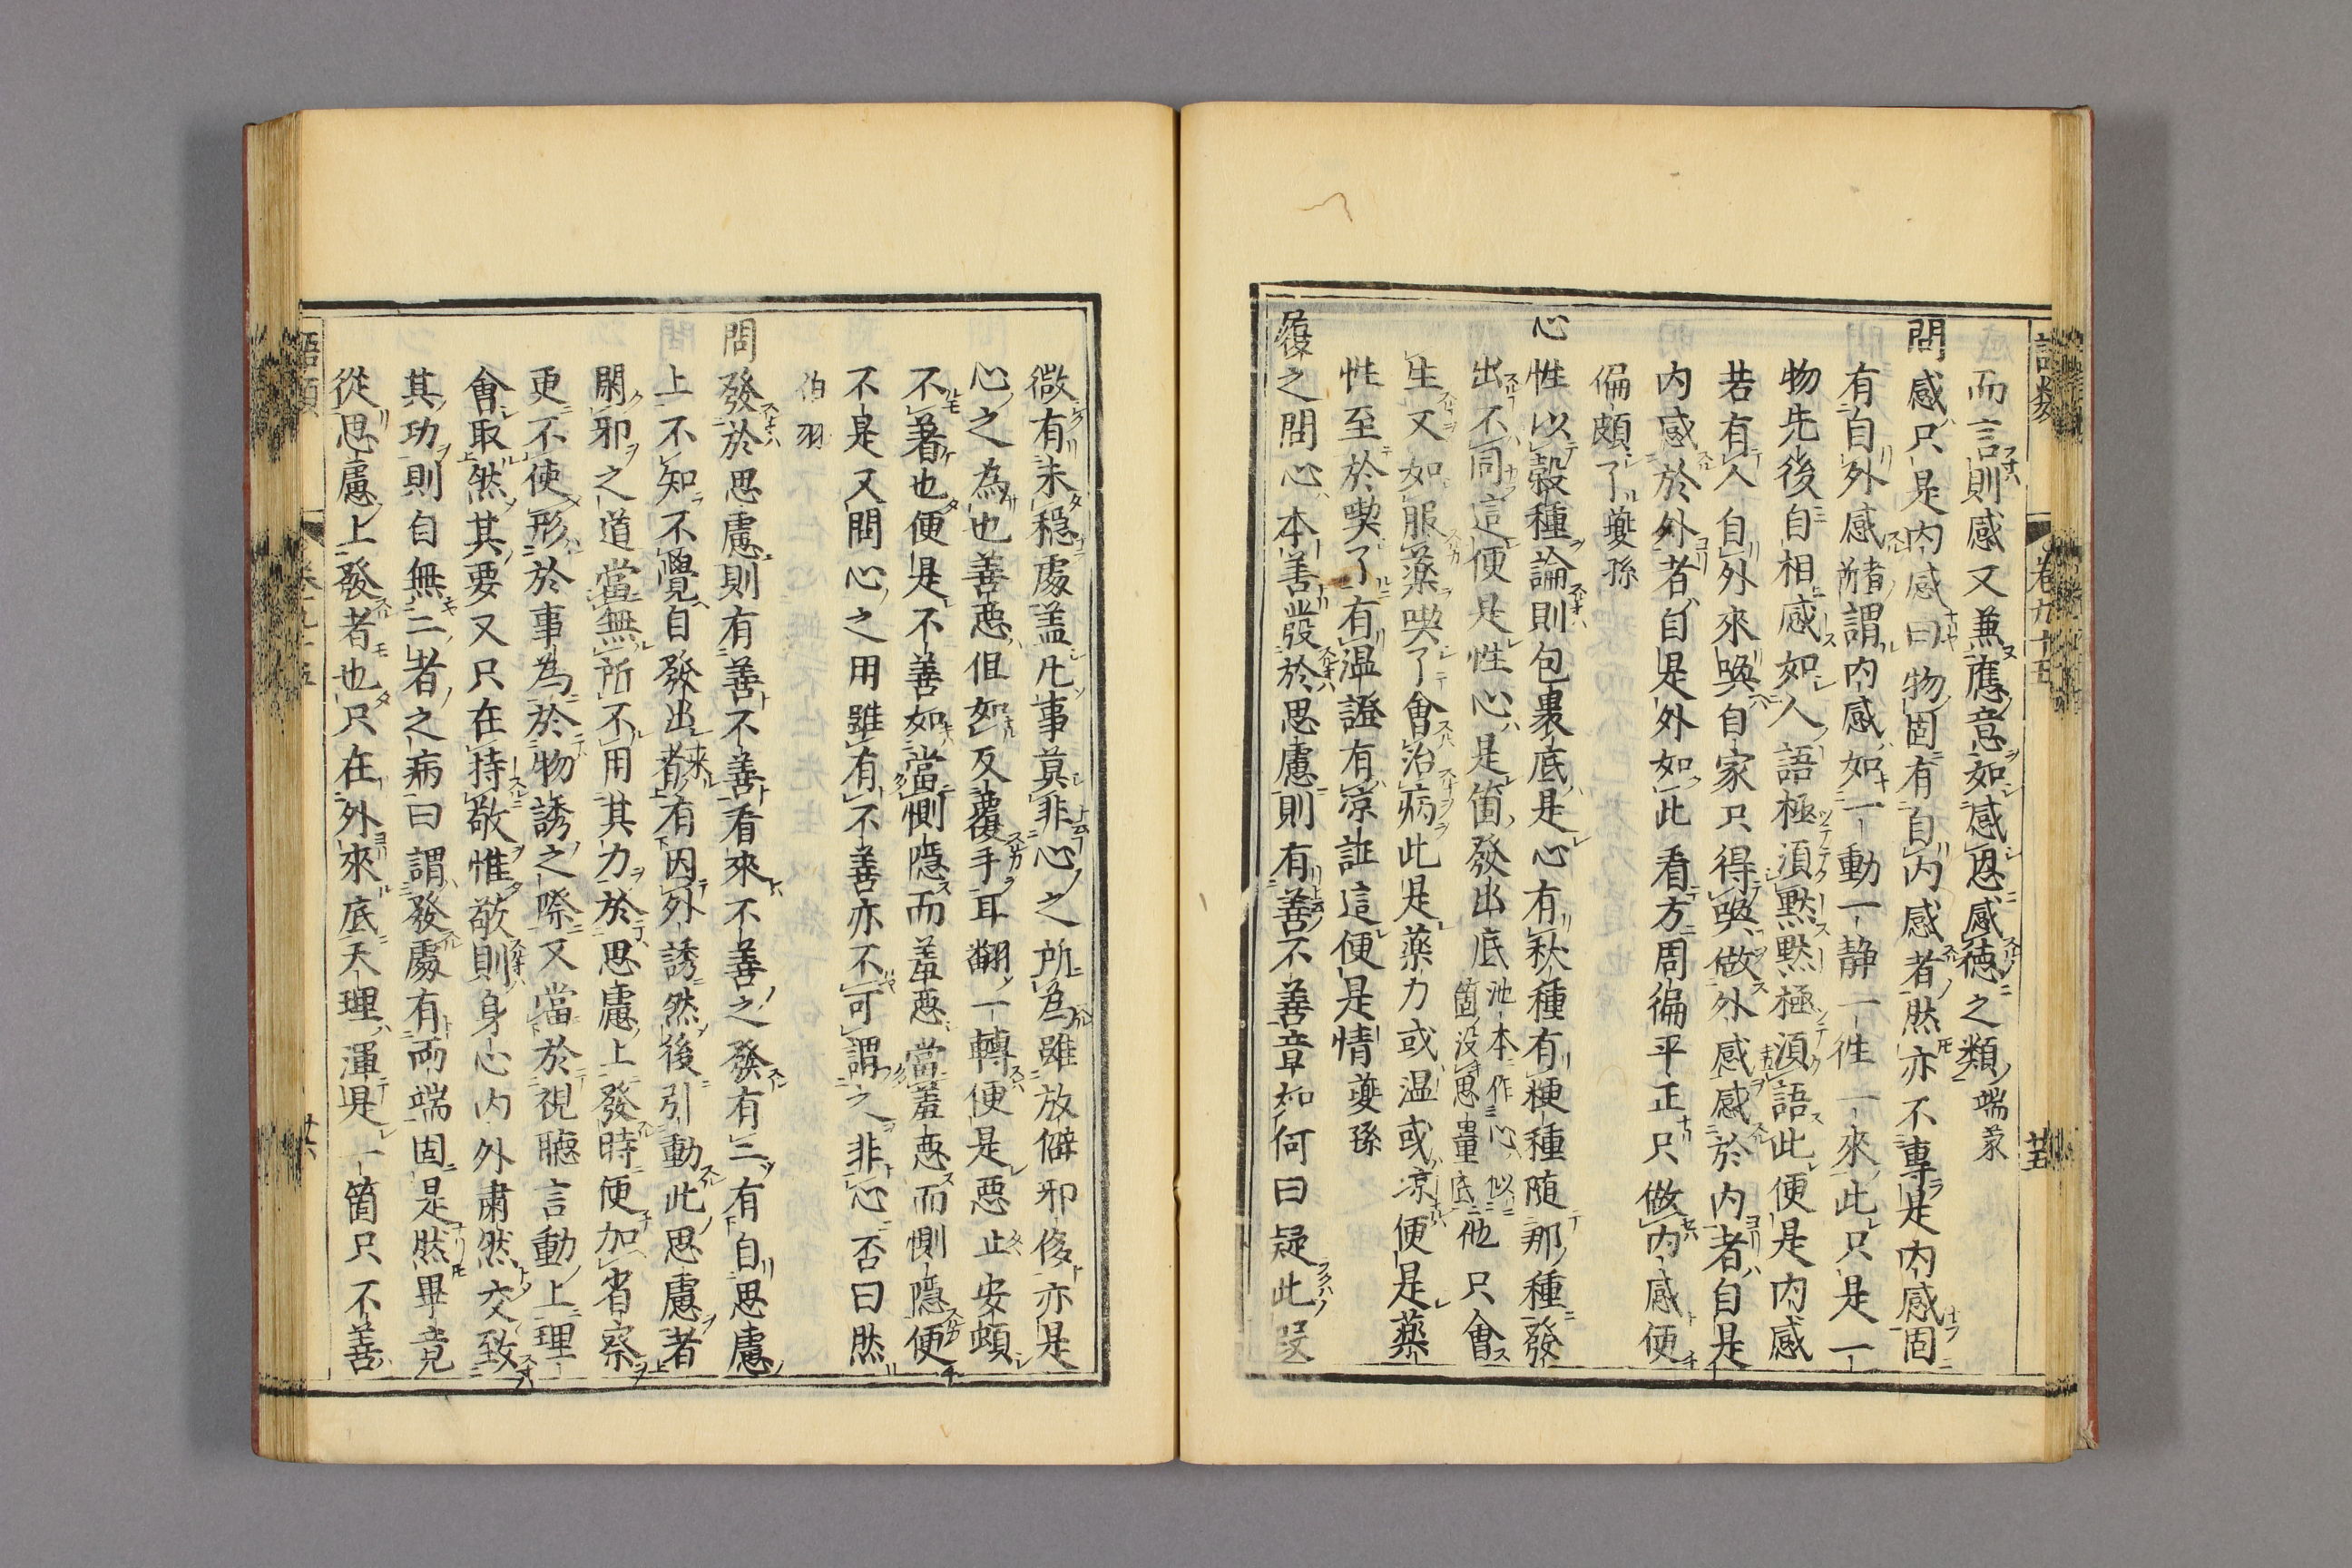 語類
卷九十五
廿五
而言則感又兼應意如感恩感德之類端蒙
問感只是内感曰物固有自内感者然亦不專是内感固
有自外感者所謂内感如一動一静一往一來此只是一
物先後自相感如人語極須默默極須語此便是内感
若有人自外來喚自家只得喚做外感感於内者自是
内感於外者自是外如此看方周徧平正只做内感便
偏頗了夔孫
心性以穀種論則包裹底是心有秫種有粳種隨那種發
出不同這便是性心是箇發出底池本作心似箇没思量底他只會
生又如服藥喫了會治病此是藥力或温或凉便是藥
性至於喫了有温證有凉証這便是情夔孫
履之問心本善發於思慮則有善不善章如何曰疑此段
微有未穩處盖凡事莫非心之所為雖放僻邪侈亦是
心之為也善惡但如反覆手耳翻一轉便是惡止安頓
不著也便是不善如當惻隱而羞惡當羞惡而惻隱便
不是又問心之用雖有不善亦不可謂之非心否曰然
伯羽
問發於思慮則有善不善看來不善之發有二有自思慮
上不知不覺自發出來者有因外誘然後引動此思慮者
閑邪之道當無所不用其力於思慮上發時便加省察
更不使形於事為於物誘之際又當於視聽言動上理
會取然其要又只在持敬惟敬則身心内外肅然交致
其功則自無二者之病曰謂發處有兩端固是然畢竟
從思慮上發者也只在外來底天理渾是一箇只不善
語類
廿六